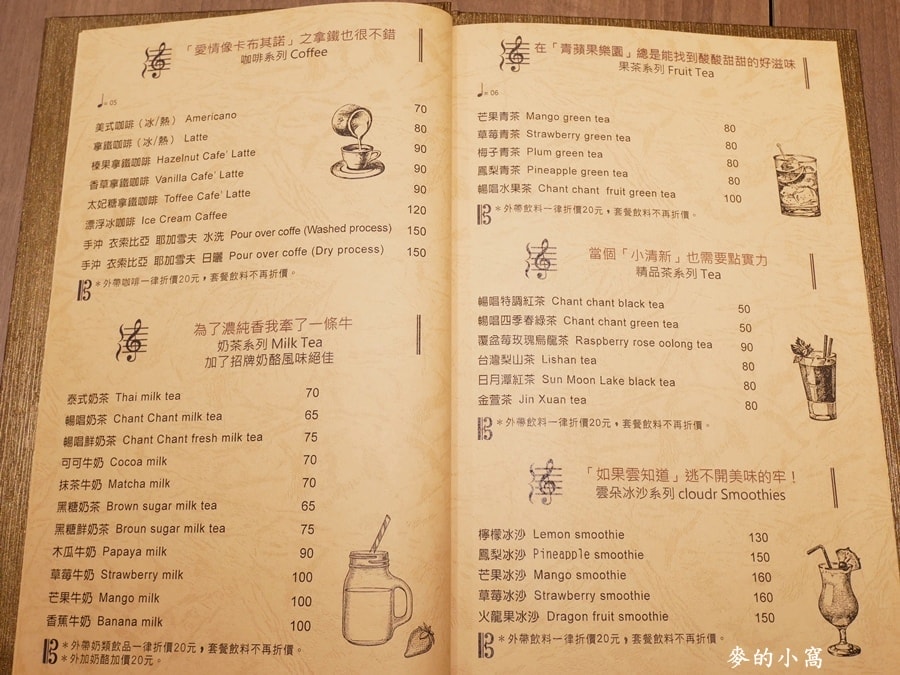 「愛情像卡布其諾」之拿鐵也很不錯
咖啡系列 Coffee
05
美式咖啡（冰/熱） Americano 70
拿鐵咖啡（冰/熱） Latte 80
榛果拿鐵咖啡 Hazelnut Cafe' Latte 90
香草拿鐵咖啡 Vanilla Cafe' Latte 90
太妃糖拿鐵咖啡 Toffee Cafe' Latte 90
漂浮冰咖啡 Ice Cream Caffee 120
手沖 衣索比亞 耶加雪夫 水洗 Pour over coffe (Washed process) 150
手沖 衣索比亞 耶加雪夫 日曬 Pour over coffe (Dry process) 150
＊外帶咖啡一律折價20元，套餐飲料不再折價。
為了濃純香我牽了一條牛
奶茶系列 Milk Tea
加了招牌奶酪風味絕佳
泰式奶茶 Thai milk tea 70
暢唱奶茶 Chant Chant milk tea 65
暢唱鮮奶茶 Chant Chant fresh milk tea 75
可可牛奶 Cocoa milk 70
抹茶牛奶 Matcha milk 70
黑糖奶茶 Brown sugar milk tea 65
黑糖鮮奶茶 Broun sugar milk tea 75
木瓜牛奶 Papaya milk 90
草莓牛奶 Strawberry milk 100
芒果牛奶 Mango milk 100
香蕉牛奶 Banana milk 100
＊外帶奶類飲品一律折價20元，套餐飲料不再折價。
＊外加奶酪加價20元。
在「青蘋果樂園」總是能找到酸酸甜甜的好滋味
果茶系列 Fruit Tea
06
芒果青茶 Mango green tea 80
草莓青茶 Strawberry green tea 80
梅子青茶 Plum green tea 80
鳳梨青茶 Pineapple green tea 80
暢唱水果茶 Chant chant fruit green tea 100
＊外帶飲料一律折價20元，套餐飲料不再折價。
當個「小清新」也需要點實力
精品茶系列 Tea
暢唱特調紅茶 Chant chant black tea 50
暢唱四季春綠茶 Chant chant green tea 50
覆盆莓玫瑰烏龍茶 Raspberry rose oolong tea 90
台灣梨山茶 Lishan tea 80
日月潭紅茶 Sun Moon Lake black tea 80
金萱茶 Jin Xuan tea 80
＊外帶飲料一律折價20元，套餐飲料不再折價。
「如果雲知道」逃不開美味的牢！
雲朵冰沙系列 cloudr Smoothies
檸檬冰沙 Lemon smoothie 130
鳳梨冰沙 Pineapple smoothie 150
芒果冰沙 Mango smoothie 160
草莓冰沙 Strawberry smoothie 160
火龍果冰沙 Dragon fruit smoothie 150
＊外帶飲料一律折價20元，套餐飲料不再折價。
麥的小窩